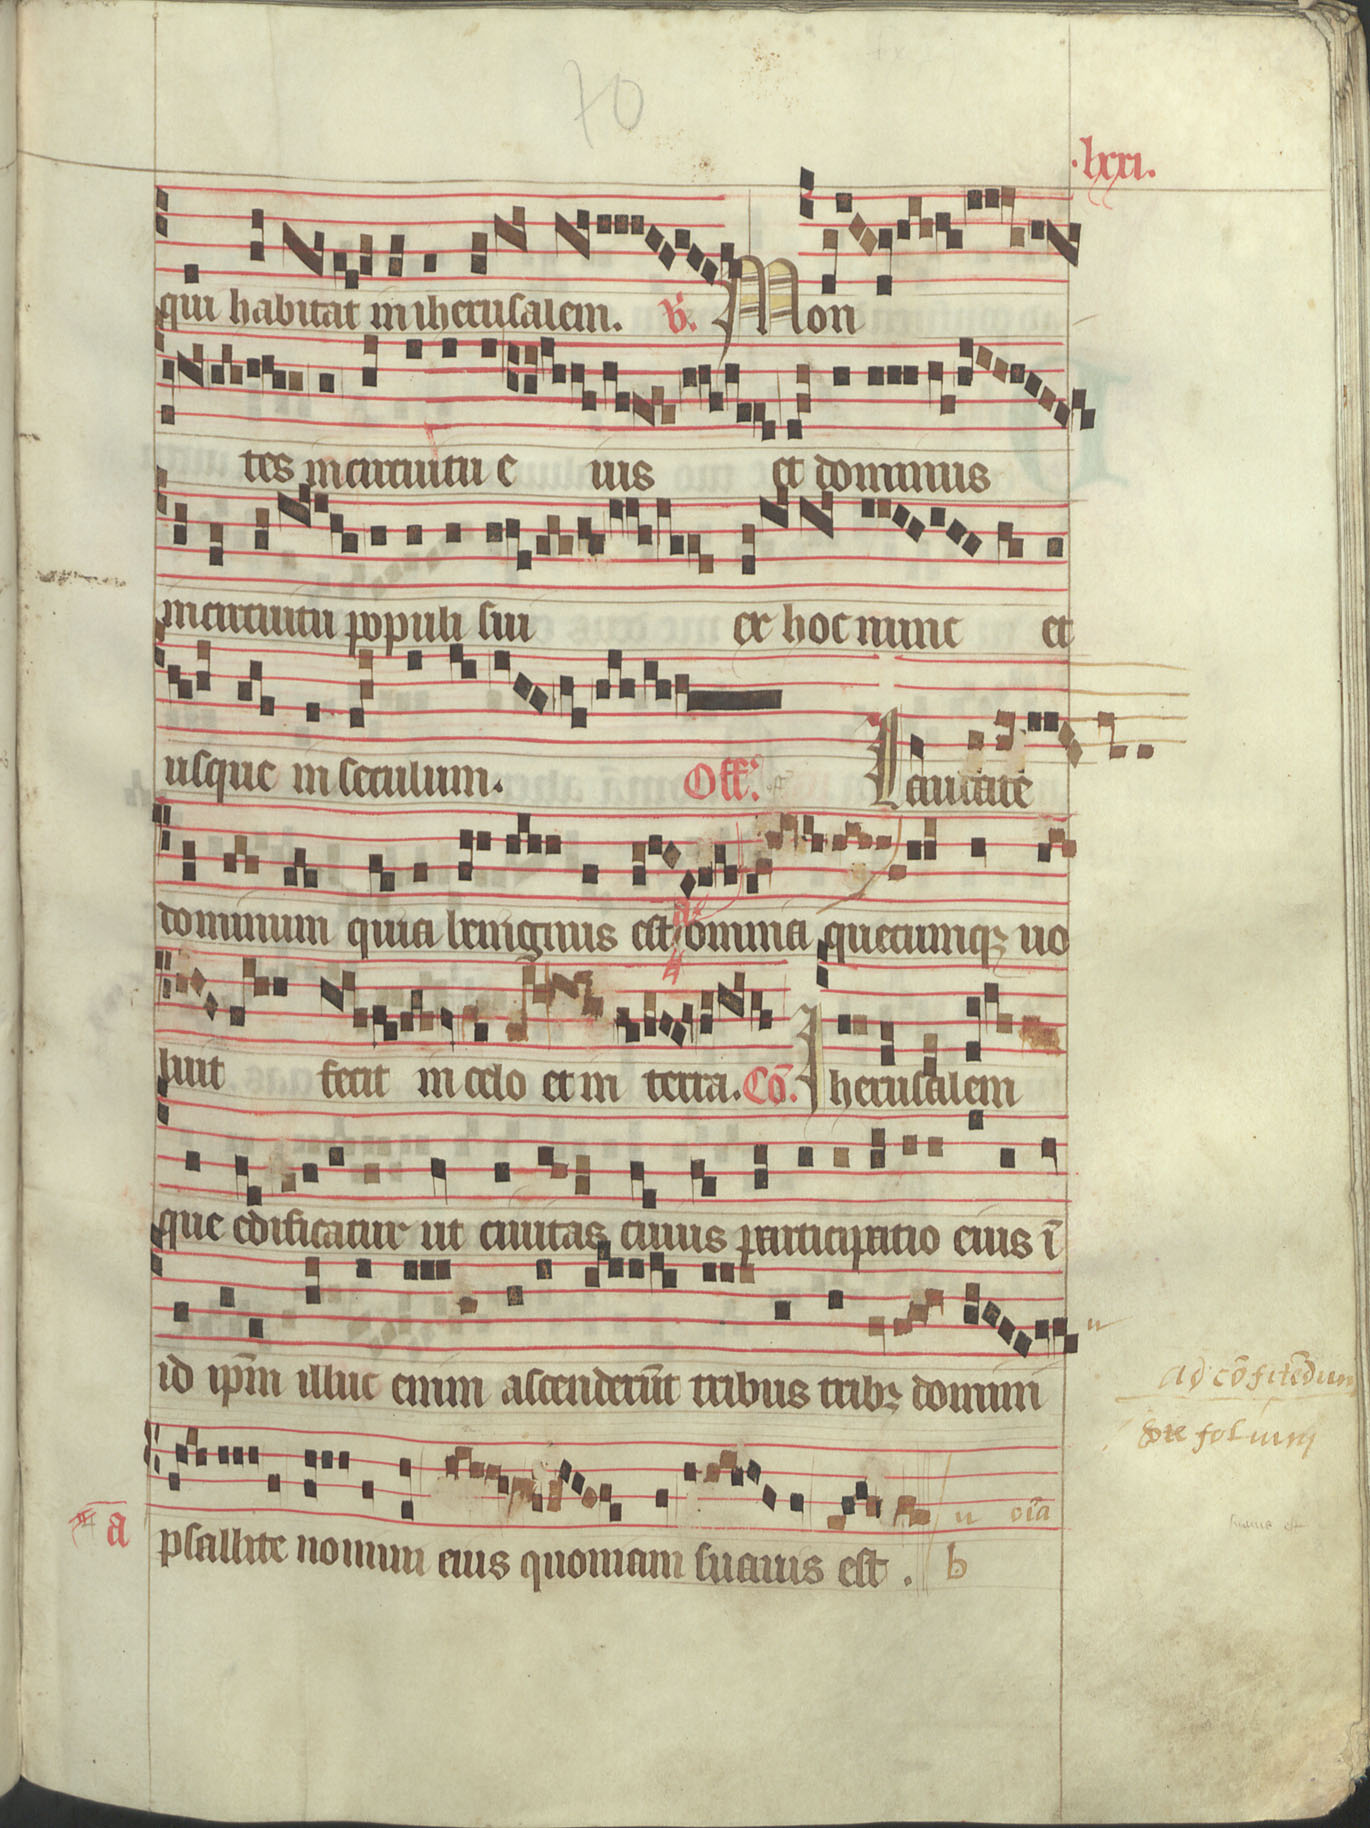 70
.lxxi.
qui habitat in iherusalem. V. Mon
tes in circuitu e ius et dominus
in circuitu populi sui ex hoc nunc et
usque in seculum. Off. Laudate
dominum quia benignus est omnia quecumqꝫ uo
luit fecit in celo et in terra. Cō. Iherusalem
que edificatur ut ciuitas cuius participatio eius ī
id ip̄m illuc enim ascenderūt tribus tribꝫ domini
ad cōfitēdum
psallite nomini eius quoniam suauis est .
a
b
oīa
suauis est